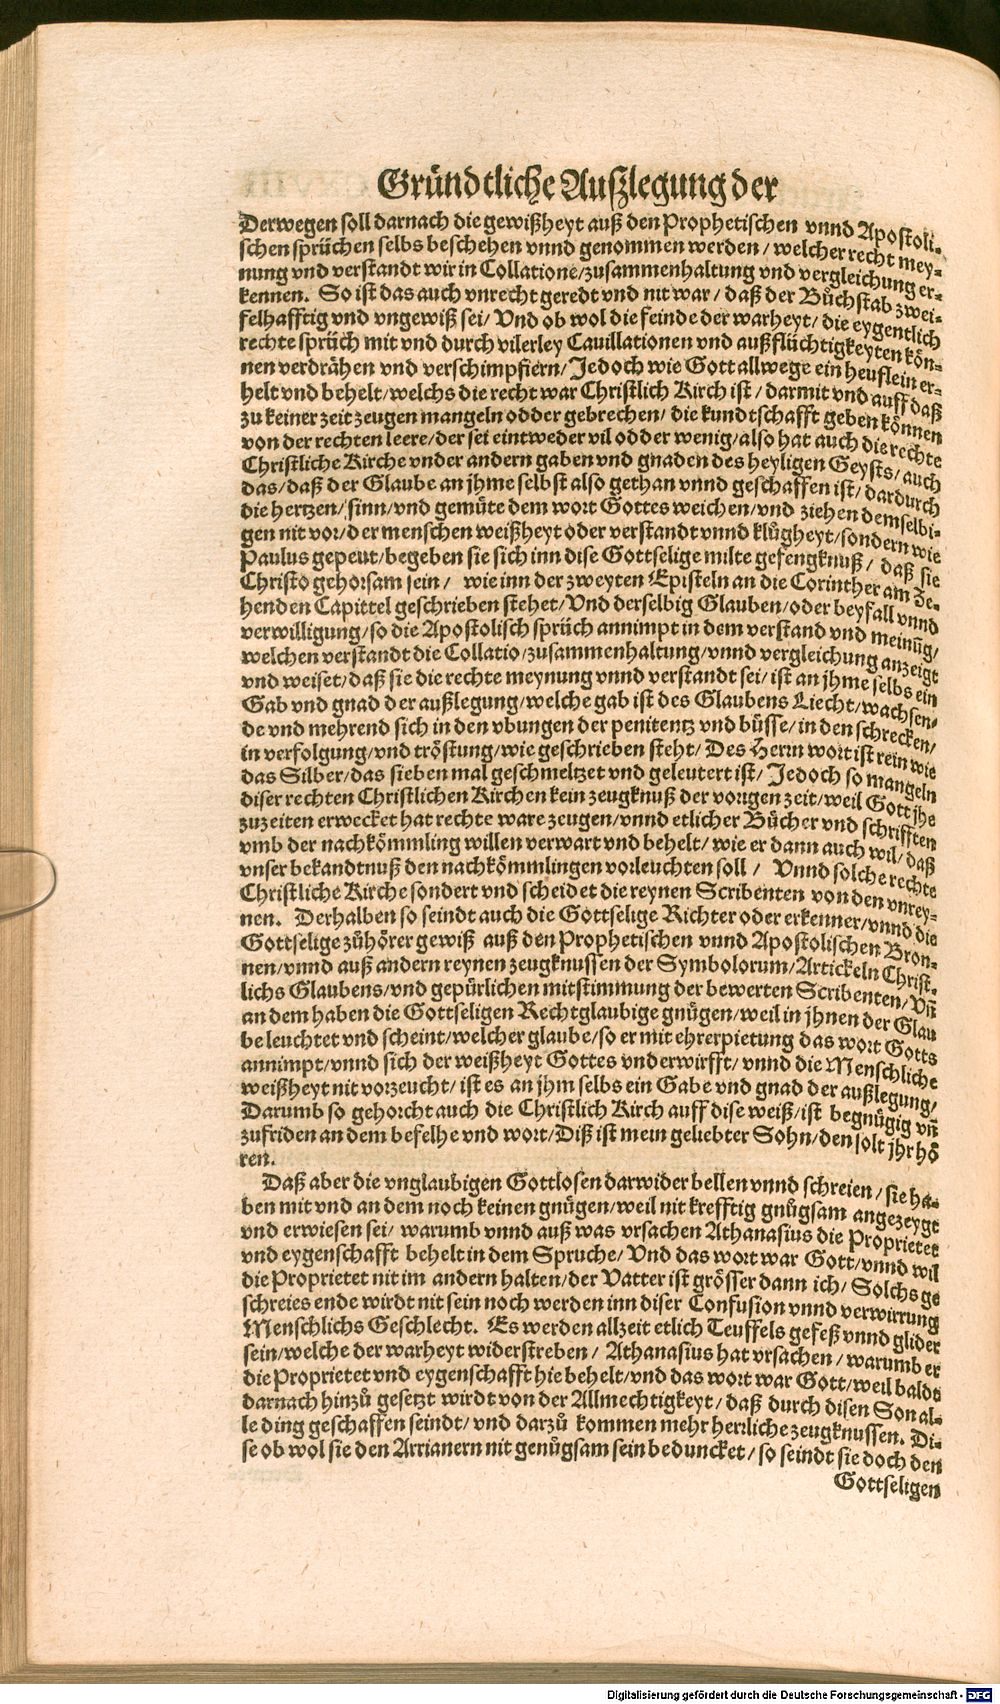 Gründtliche Außlegung der
Derwegen soll darnach die gewißheyt auß den Prophetischen vnnd Apostoli-
schen sprüchen selbs beschehen vnnd genommen werden / welcher recht mey-
nung vnd verstandt wir in Collatione/zusammenhaltung vnd vergleichung er-
kennen. So ist das auch vnrecht geredt vnd nit war / daß der Bůchstab zwei-
felhafftig vnd vngewiß sei/ Vnd ob wol die feinde der warheyt/ die eygentlich
rechte sprüch mit vnd durch vilerley Cauillationen vnd außflüchtigkeyten kön-
nen verdrähen vnd verschimpfiern/ Jedoch wie Gott allwege ein heuflein er-
helt vnd behelt/welchs die recht war Christlich Kirch ist / darmit vnd auff daß
zu keiner zeit zeugen mangeln odder gebrechen/ die kundtschafft geben können
von der rechten leere/der sei eintweder vil odder wenig/also hat auch die rechte
Christliche Kirche vnder andern gaben vnd gnaden des heyligen Geysts/auch
das/daß der Glaube an jhme selbst also gethan vnnd geschaffen ist/dardurch
die hertzen/sinn/vnd gemüte dem wort Gottes weichen/vnd ziehen demselbi-
gen nit vor/der menschen weißheyt oder verstandt vnnd klůgheyt/sondern wie
Paulus gepeut/begeben sie sich inn dise Gottselige milte gefengknuß / daß sie
Christo gehorsam sein / wie inn der zweyten Episteln an die Corinther am Ze-
henden Capittel geschrieben stehet/Vnd derselbig Glauben/oder beyfall vnnd
verwilligung/so die Apostolisch sprüch annimpt in dem verstand vnd meinūg/
welchen verstandt die Collatio/zusammenhaltung/vnnd vergleichung anzeigt
vnd weiset/daß sie die rechte meynung vnnd verstandt sei/ist an jhme selbs ein
Gab vnd gnad der außlegung/welche gab ist des Glaubens Liecht/wachsen-
de vnd mehrend sich in den vbungen der penitentz vnd bůsse/in den schrecken/
in verfolgung/vnd tröstung/wie geschrieben steht/ Des Herrn wort ist rein wie
das Silber/das sieben mal geschmeltzet vnd geleutert ist/ Jedoch so mangeln
diser rechten Christlichen Kirchen kein zeugknuß der vorigen zeit/weil Gott jhe
zuzeiten erwecket hat rechte ware zeugen/vnnd etlicher Bücher vnd schrifften
vmb der nachkömmling willen verwart vnd behelt/wie er dann auch wil/daß
vnser bekandtnuß den nachkömmlingen vorleuchten soll / Vnnd solche rechte
Christliche Kirche sondert vnd scheidet die reynen Scribenten von den vnrey-
nen. Derhalben so seindt auch die Gottselige Richter oder erkenner/vnnd die
Gottselige zůhörer gewiß auß den Prophetischen vnnd Apostolischen Bron-
nen/vnnd auß andern reynen zeugknussen der Symbolorum/Artickeln Christ-
lichs Glaubens/vnd gepürlichen mitstimmung der bewerten Scribenten/Vñ
an dem haben die Gottseligen Rechtglaubige gnügen/weil in jhnen der Glau
be leuchtet vnd scheint/welcher glaube/so er mit ehrerpietung das wort Gotts
annimpt/vnnd sich der weißheyt Gottes vnderwirfft/vnnd die Menschliche
weißheyt nit vorzeucht/ist es an jhm selbs ein Gabe vnd gnad der außlegung/
Darumb so gehorcht auch die Christlich Kirch auff dise weiß/ist begnügig vñ
zufriden an dem befelhe vnd wort/Diß ist mein geliebter Sohn/den solt jhr hö
ren.
Daß aber die vnglaubigen Gottlosen darwider bellen vnnd schreien/sie ha-
ben mit vnd an dem noch keinen gnügen/weil nit krefftig gnůgsam angezeygt
vnd erwiesen sei/ warumb vnnd auß was vrsachen Athanasius die Proprietet
vnd eygenschafft behelt in dem Spruche/ Vnd das wort war Gott/vnnd wil
die Proprietet nit im andern halten/der Vatter ist grösser dann ich/Solchs ge
schreies ende wirdt nit sein noch werden inn diser Confusion vnnd verwirrung
Menschlichs Geschlecht. Es werden allzeit etlich Teuffels gefeß vnnd glider
sein/welche der warheyt widerstreben/ Athanasius hat vrsachen/warumb er
die Proprietet vnd eygenschafft hie behelt/vnd das wort war Gott/weil baldt
darnach hinzů gesetzt wirdt von der Allmechtigkeyt/daß durch disen Son al-
le ding geschaffen seindt/vnd darzů kommen mehr herrliche zeugknussen. Di-
se ob wol sie den Arrianern nit genůgsam sein beduncket/so seindt sie doch den
Gottseligen
Digitalisierung gefördert durch die Deutsche Forschungsgemeinschaft - DFG